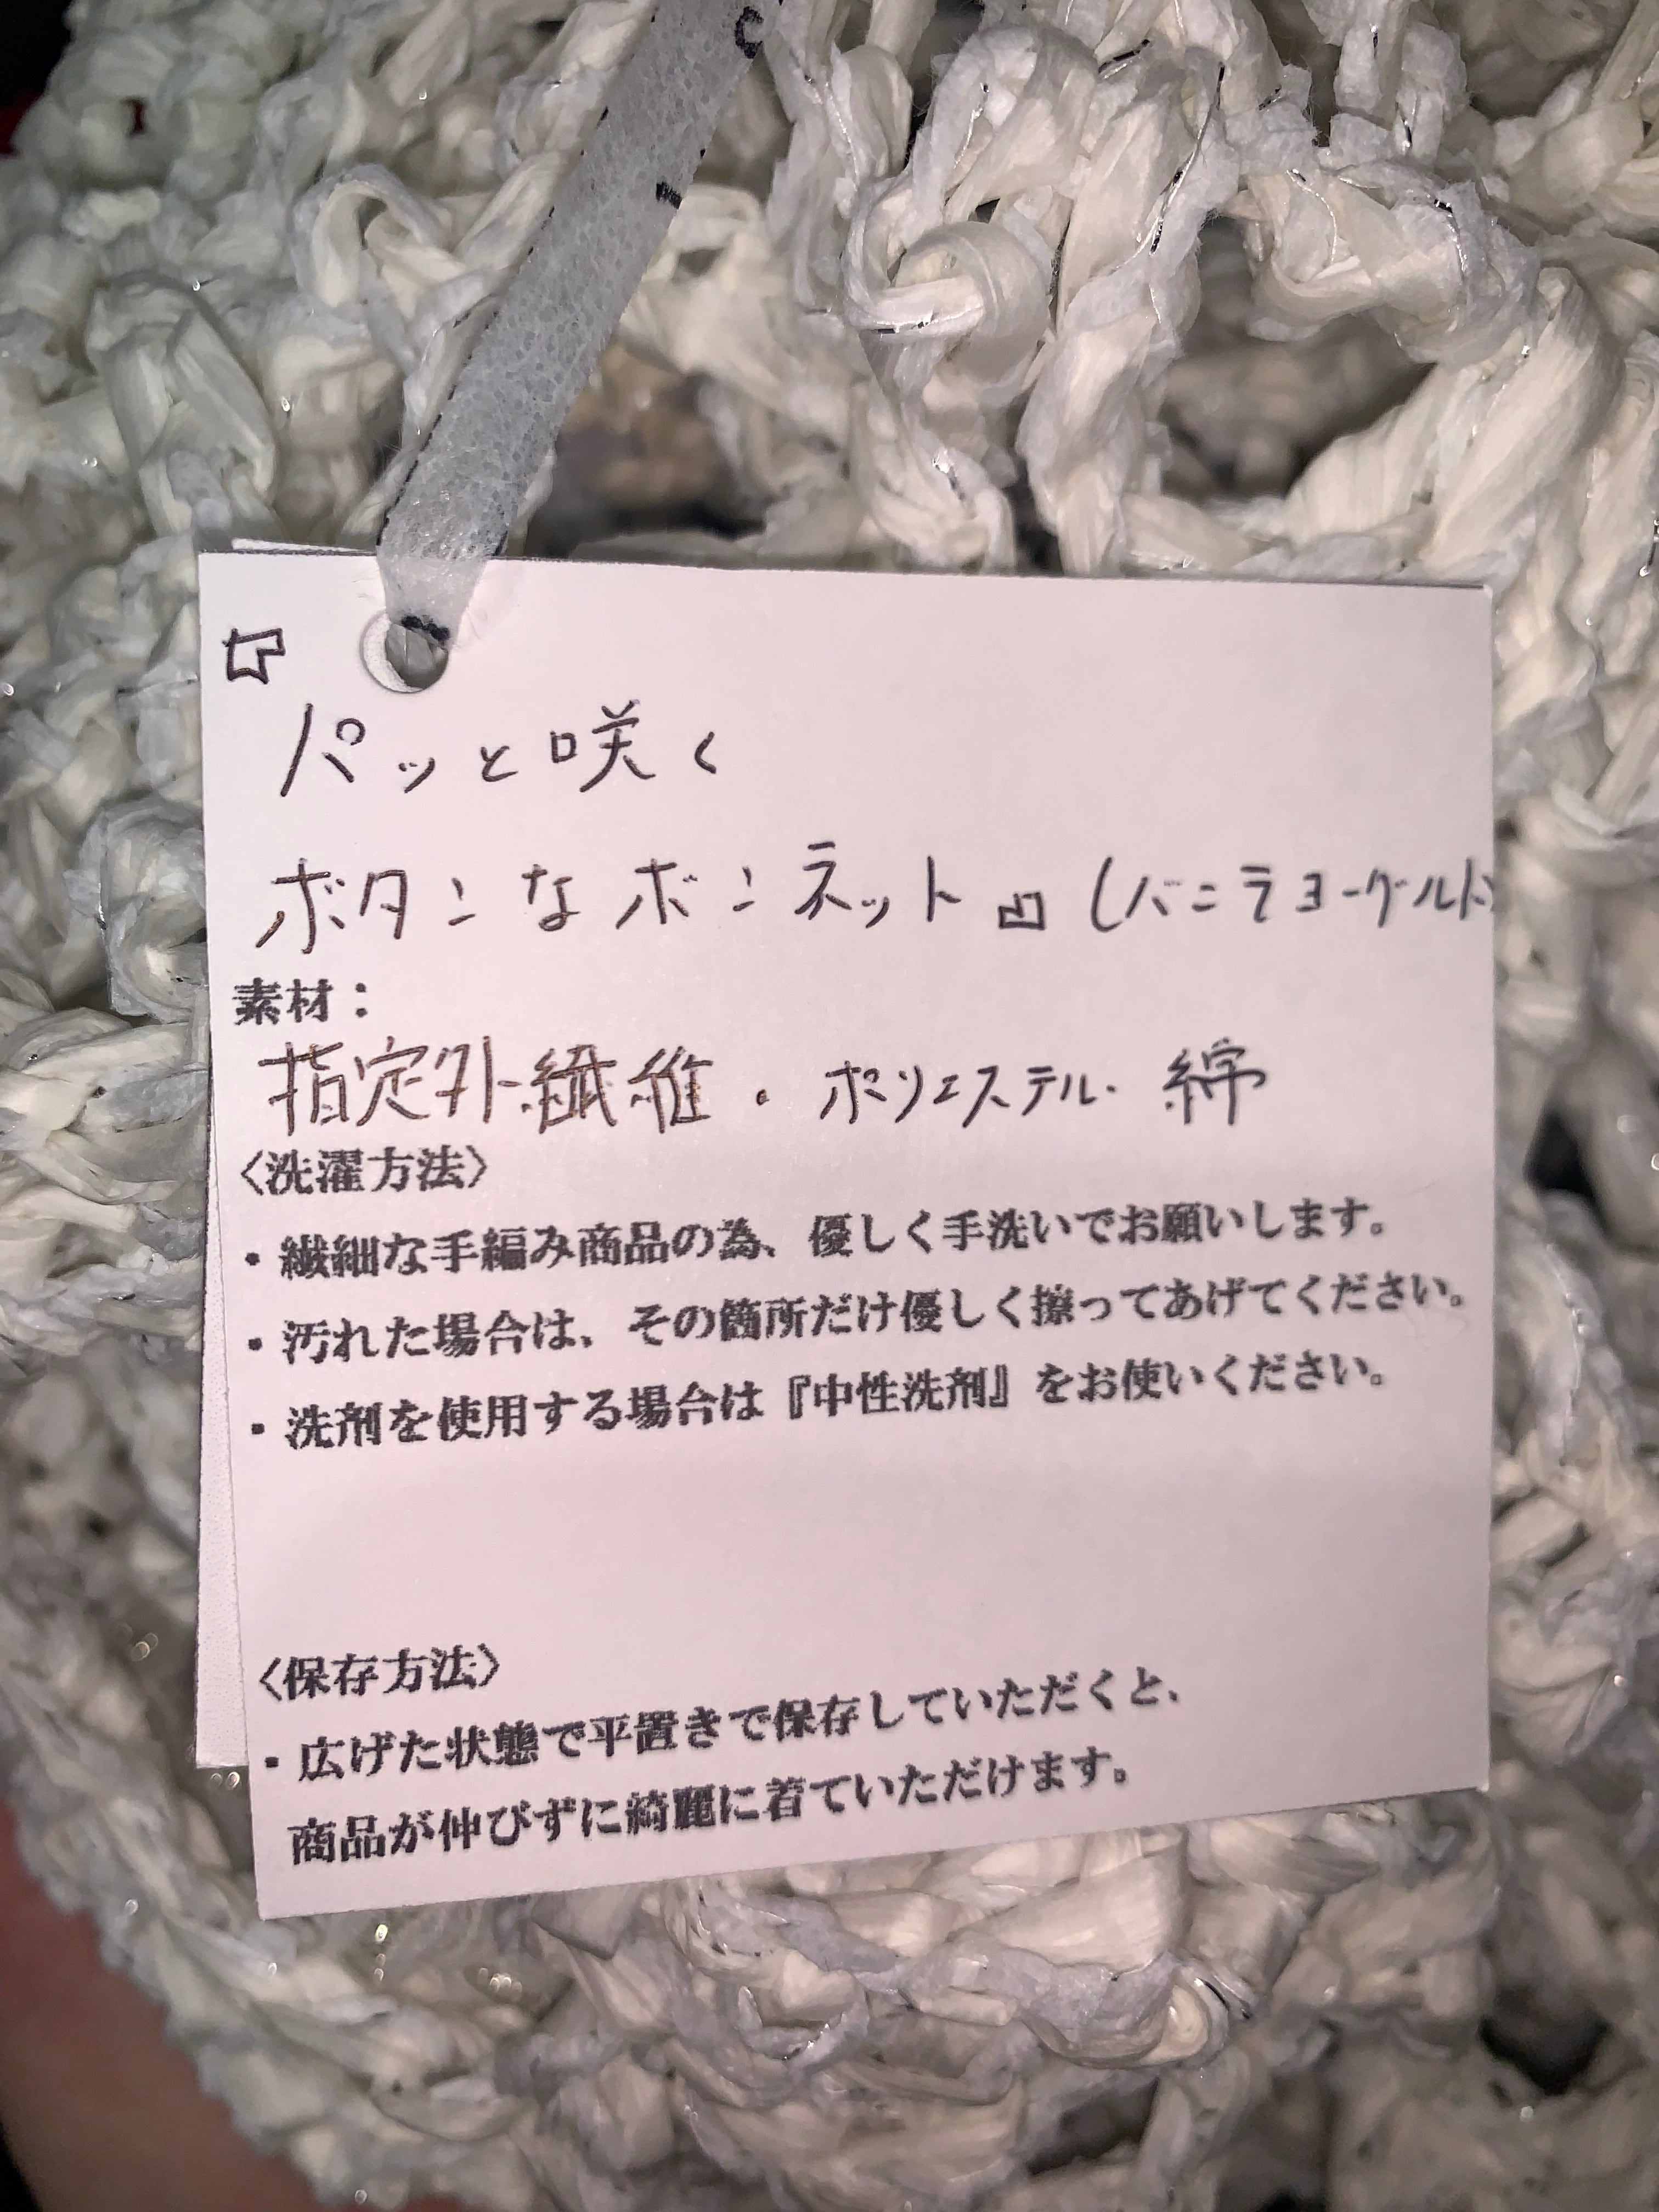 パッと咲く
ボタンなボンネット (バニラヨーグルト)
素材：
指定外繊維・ポリエステル・綿
〈洗濯方法〉
・繊細な手編み商品の為、優しく手洗いでお願いします。
・汚れた場合は、その箇所だけ優しく擦ってあげてください。
・洗剤を使用する場合は『中性洗剤』をお使いください。
〈保存方法〉
・広げた状態で平置きで保存していただくと、
商品が伸びずに綺麗に着ていただけます。